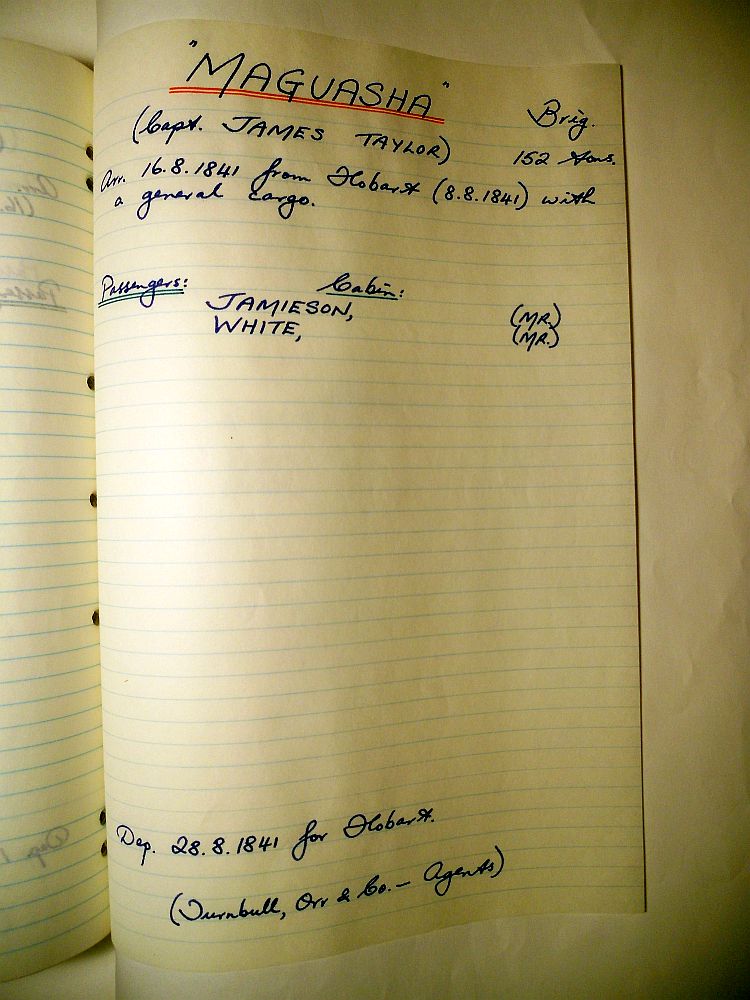 "MAGUASHA" Brig.
(Capt. JAMES TAYLOR) 152 tons.
Arr. 16.8.1841 from Hobart (8.8.1841) with
a general cargo.
Passengers: Cabin:
JAMIESON, (MR.)
WHITE, (MR.)
Dep. 28.8.1841 for Hobart.
(Turnbull, Orr & Co. — Agents)